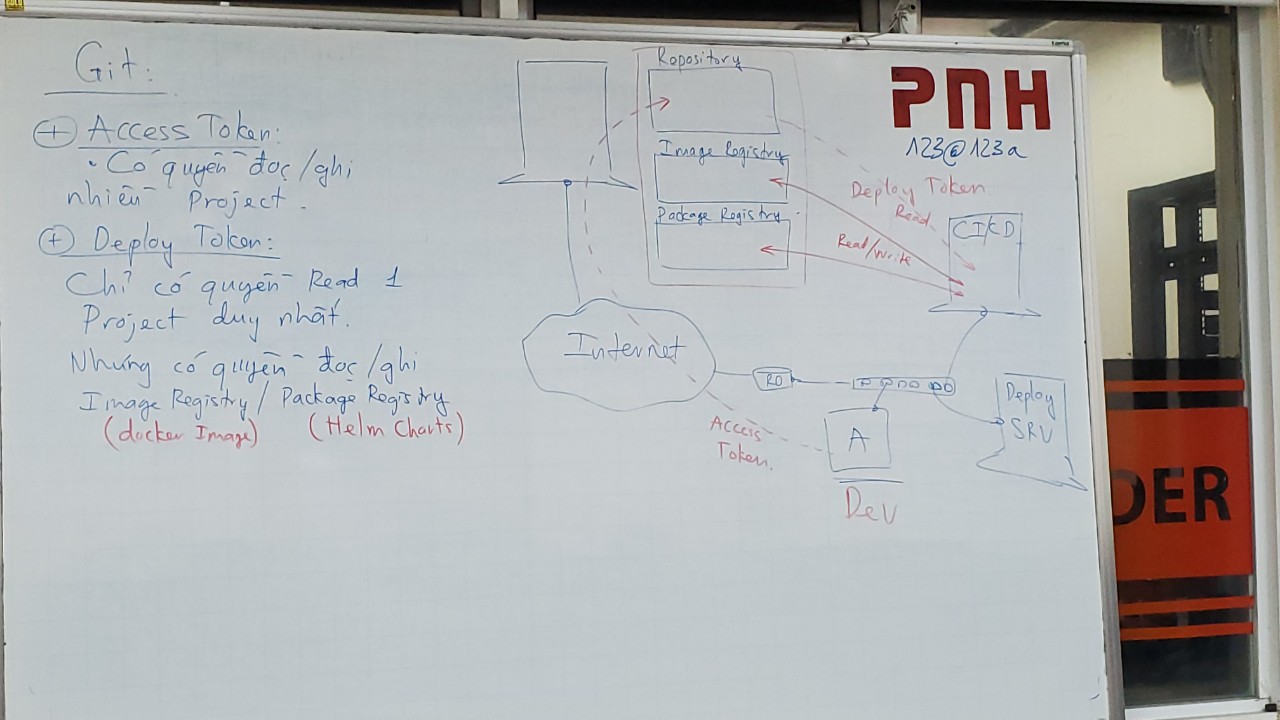 Git:
+ Access Token:
• Có quyền đọc/ghi
nhiều Project.
+ Deploy Token:
Chỉ có quyền Read 1
Project duy nhất.
Nhưng có quyền đọc/ghi
Image Registry / Package Registry
(docker Image) (Helm Charts)
Ropository
Image Registry
Package Registry
PNH
123@123a
Deploy Token
Read
Read/Write
CICD
Internet
RO
Deploy
SRV
Access
Token.
A
Dev
DER